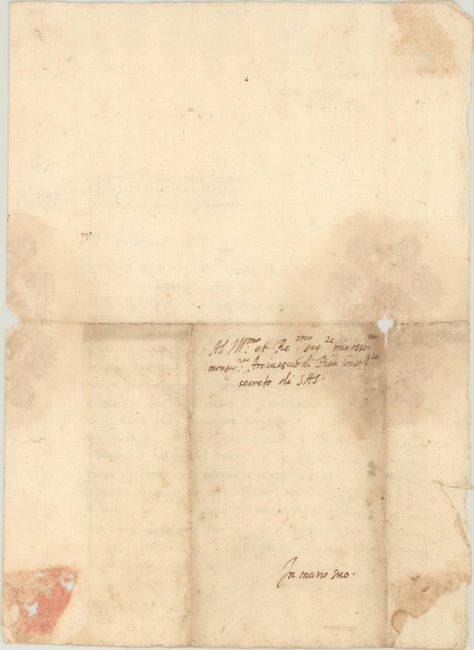 Al Ill.mo et Re.mo sig.re mio osser.mo
monsig.re Arcivescovo di Pisa Consig.io
secreto di SAS.
In mano suo.